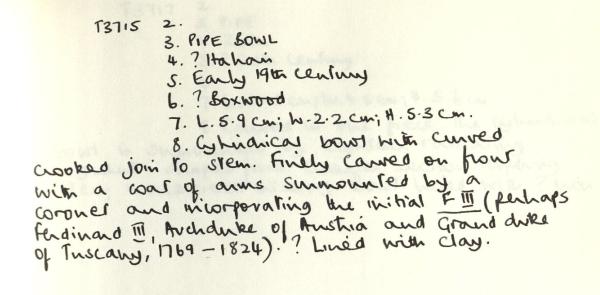 T3715 2.
3. PIPE BOWL
4. ? Italian
5. Early 19th century
6. ? Boxwood
7. L. 5.9 cm; W. 2.2 cm; H. 5.3 cm.
8. Cylindrical bowl with curved
crooked join to stem. Finely carved on front
with a coat of arms surmounted by a
coronet and incorporating the initial F III (perhaps
Ferdinand III, Archduke of Austria and Grand duke
of Tuscany, 1769 - 1824). ? Lined with clay.